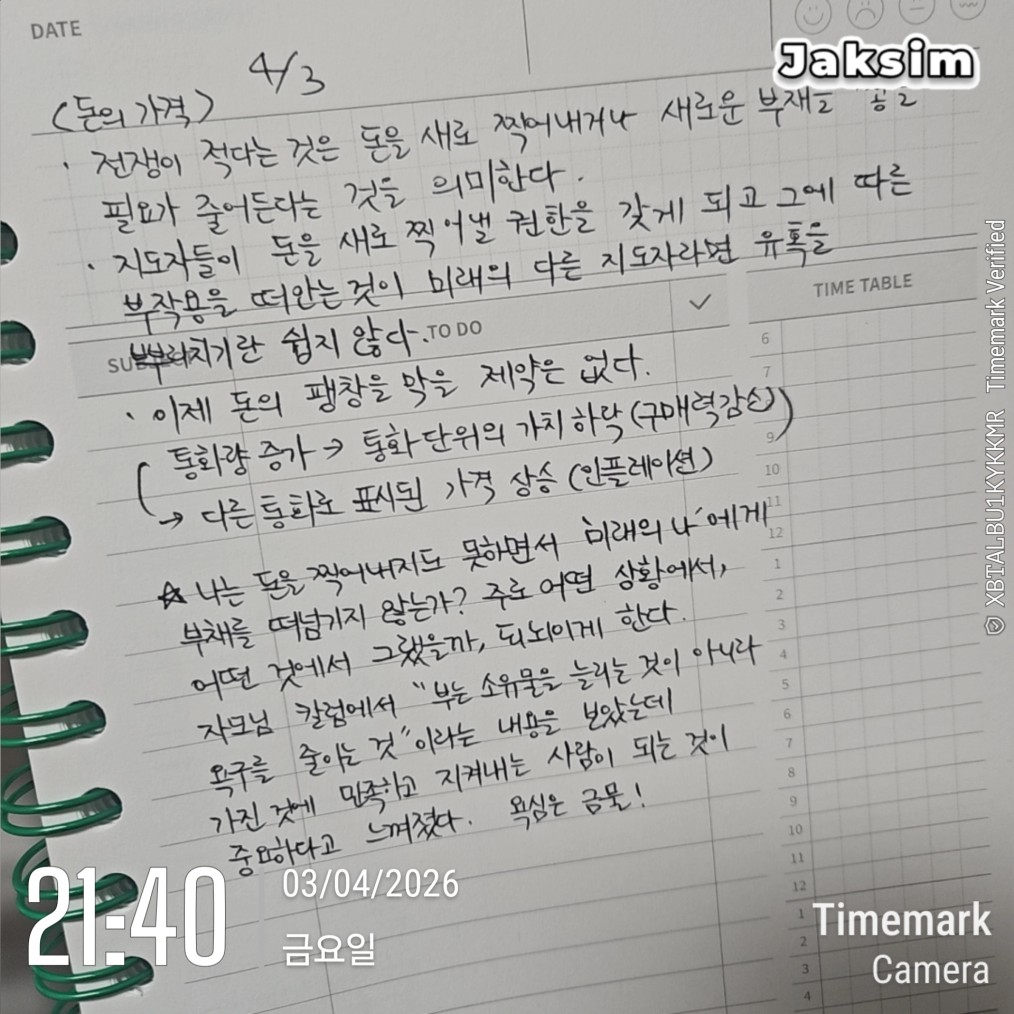 DATE
Jaksim
4/3
(돈의 가격)
· 전쟁이 적다는 것은 돈을 새로 찍어내거나 새로운 부채를
필요가 줄어든다는 것을 의미한다.
· 지도자들이 돈을 새로 찍어낼 권한을 갖게 되고 그에 따른
부작용을 떠안는것이 미래의 다른 지도자라면 유혹을
치기란 쉽지 않다.
TO DO
TIME TABLE
· 이제 돈의 팽창을 막을 제약은 없다.
통화량 증가 → 통화단위의 가치하락 (구매력감소)
→ 다른통화로 표시된 가격 상승 (인플레이션)
☆ 나는 돈을 찍어내지도 못하면서 '미래의 나'에게
부채를 떠넘기지 않는가? 주로 어떤 상황에서,
어떤 것에서 그랬을까, 되뇌이게 한다.
자모님 칼럼에서 "부는 소유물을 늘리는 것이 아니라
욕구를 줄이는 것"이라는 내용을 보았는데
가진 것에 만족하고 지켜내는 사람이 되는 것이
중요하다고 느껴졌다. 욕심은 금물!
6
7
9
10
11
12
1
2
3
4
5
6
7
8
9
10
11
12
1
2
3
4
21:40
03/04/2026
금요일
Timemark
Camera
XBTALBU1KYKKMR Timemark Verified